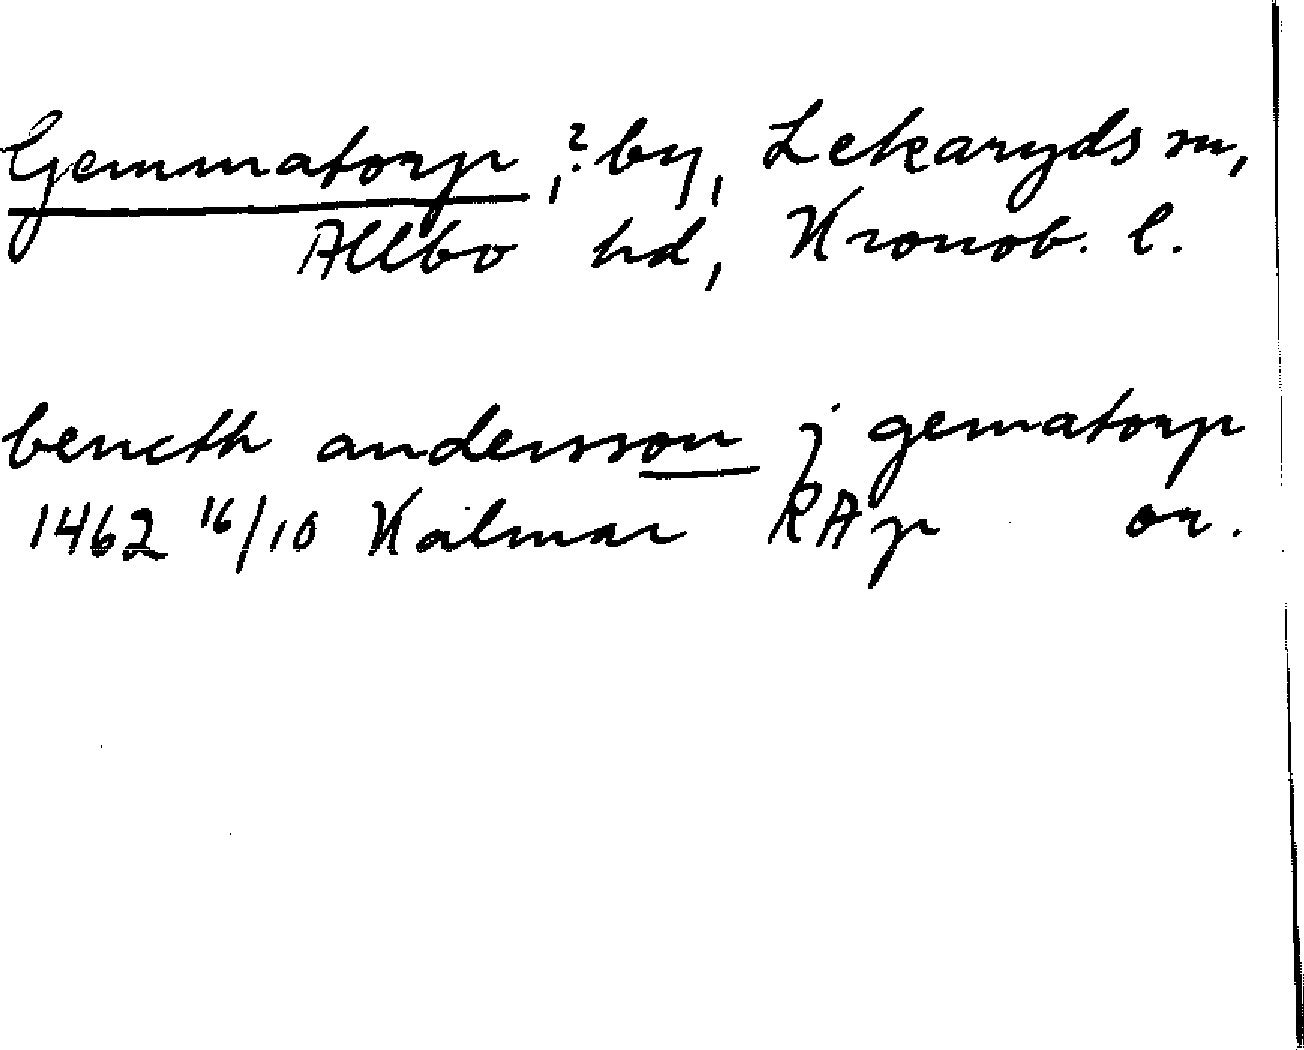 Gemmatorp, ? by, Lekaryds sn,
Allbo hd, Kronob. l.
bencth andersson j gematorp
1462 16/10 Kalmar RAp or.